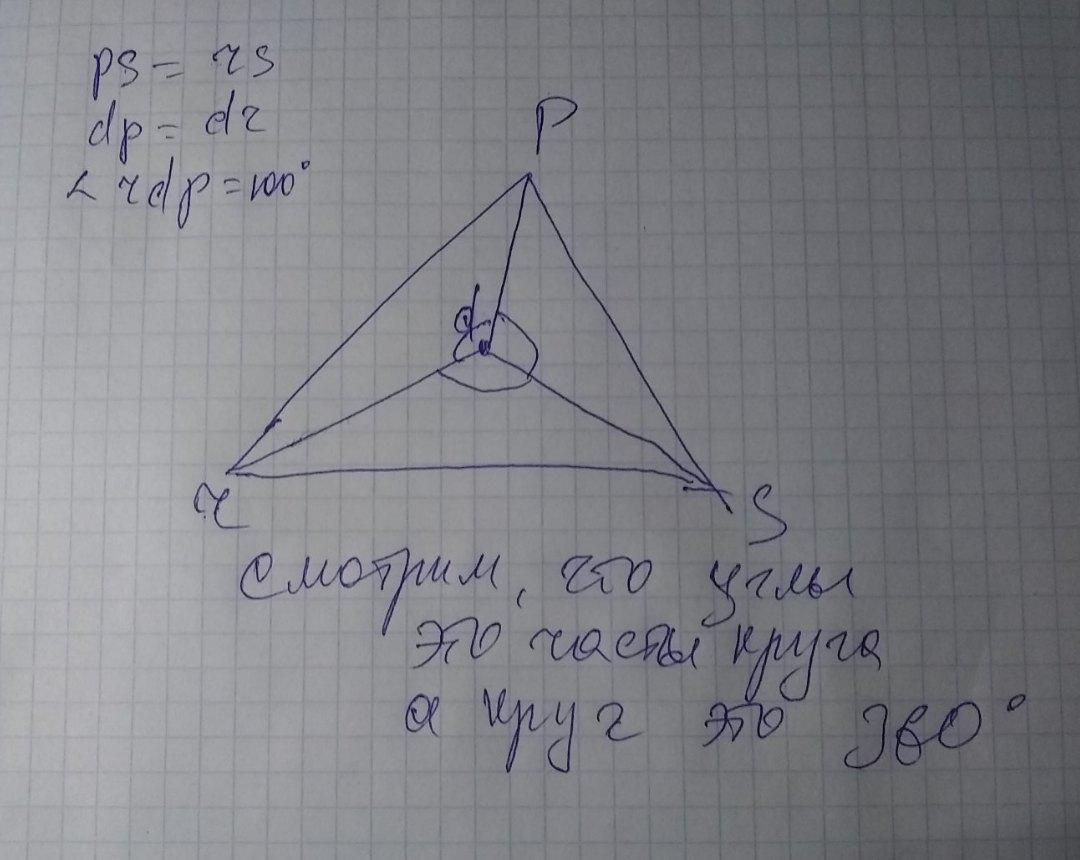 ps = rs
dp = dr
∠ rdp = 100°
P
d
r
S
смотрим, что углы
это часты круга
а круг это 360°